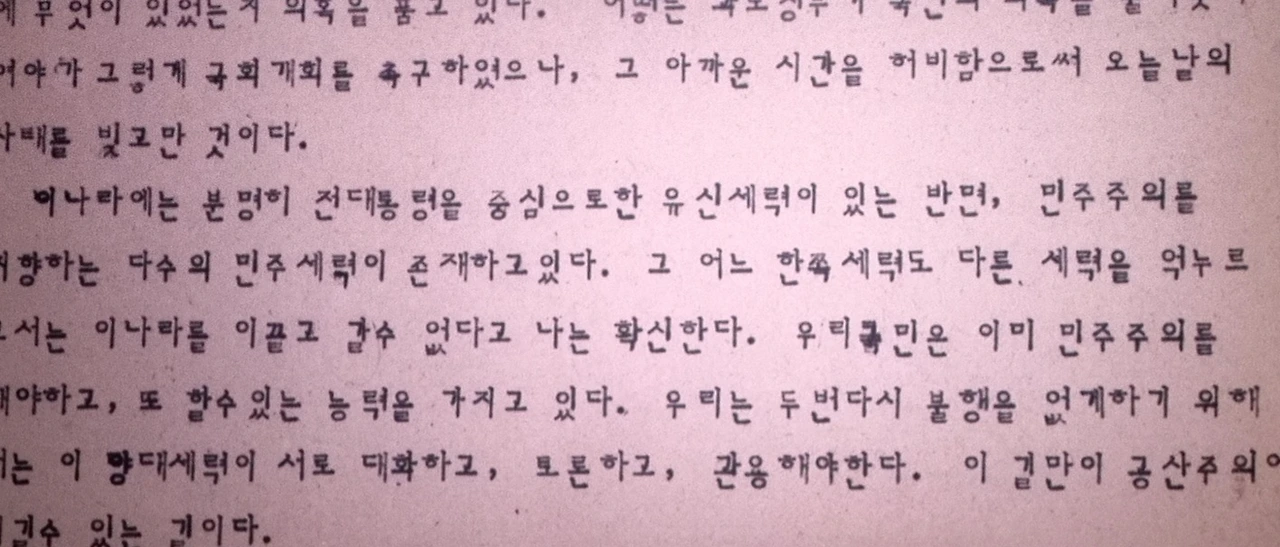 무엇이 있었는지 의혹을 품고 있다.
여야가 그렇게 국회개회를 촉구하였으나, 그 아까운 시간을 허비함으로써 오늘날의
사태를 빚고만 것이다.
이나라에는 분명히 전대통령을 중심으로한 유신세력이 있는 반면, 민주주의를
향하는 다수의 민주세력이 존재하고있다. 그 어느 한쪽세력도 다른 세력을 억누르
서는 이나라를 이끌고 갈수 없다고 나는 확신한다. 우리국민은 이미 민주주의를
해야하고, 또 할수있는 능력을 가지고 있다. 우리는 두번다시 불행을 없게하기 위해
는 이 양대세력이 서로 대화하고, 토론하고, 관용해야한다. 이 길만이 공산주의
길수 있는 길이다.